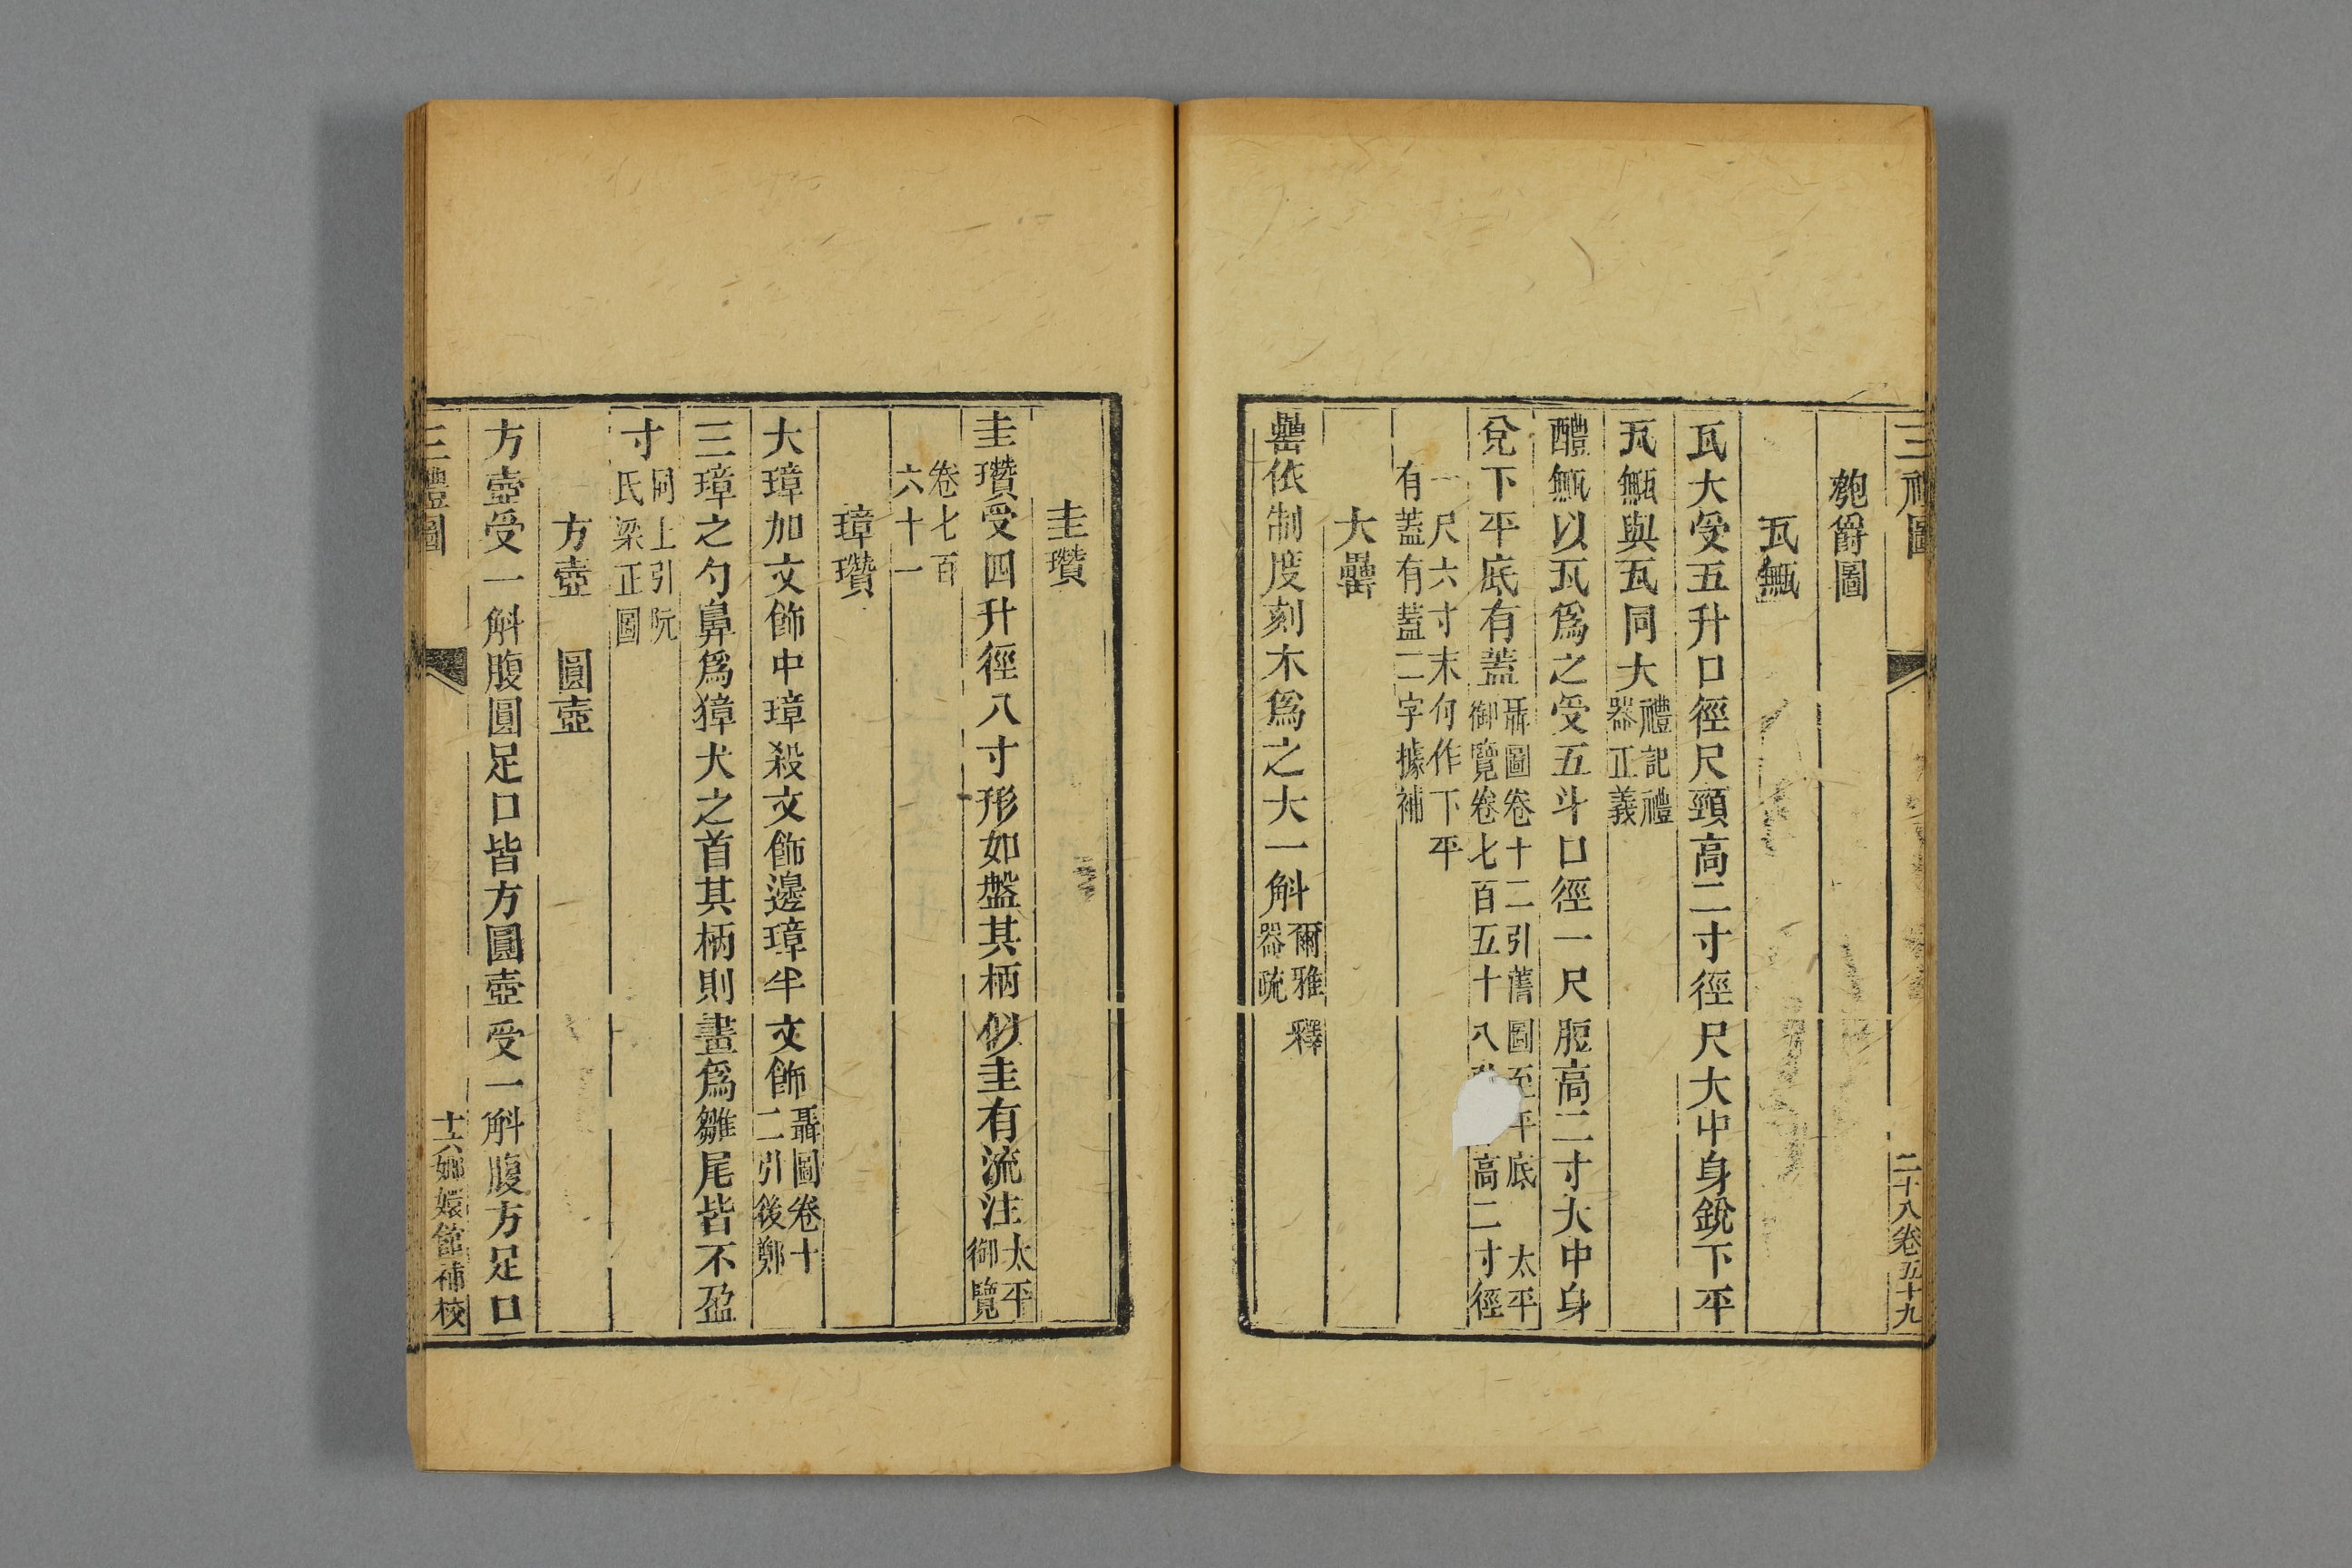 三禮圖 二十八卷五十九
匏爵圖
瓦甒
瓦大受五升口徑尺頸高二寸徑尺大中身銳下平
瓦甒與瓦同大禮記禮器正義
醴甒以瓦爲之受五斗口徑一尺脰高二寸大中身
兌下平底有蓋聶圖卷十二引舊圖至平底 太平御覽卷七百五十八 高二寸徑
一尺六寸末句作下平有蓋有蓋二字據補
大罍
罍依制度刻木爲之大一斛爾雅釋器疏
圭瓚
圭瓚受四升徑八寸形如盤其柄似圭有流注太平御覽
卷七百六十一
璋瓚
大璋加文飾中璋殺文飾邊璋半文飾聶圖卷十二引後鄭
三璋之勺鼻爲獐犬之首其柄則畫爲雛尾皆不盈
寸同上引阮氏梁正圖
方壺 圓壺
方壺受一斛腹圓足口皆方圓壺受一斛腹方足口
三禮圖 十六嫏嬛館補校